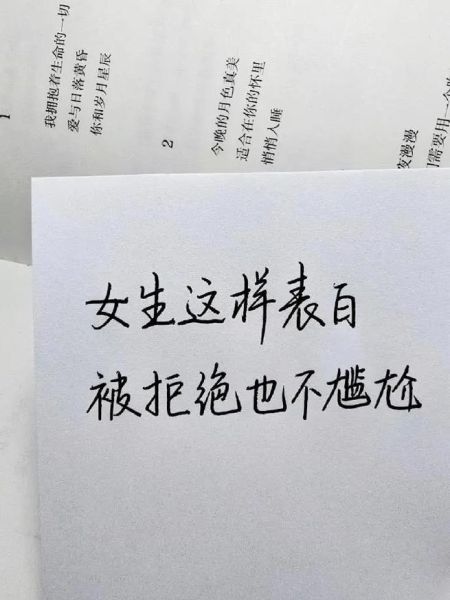 1
我拥抱着生命的一切
爱与日落黄昏
你和岁月星辰
2
今晚的月色真美
适合在你的怀里
悄悄入睡
夜漫漫
女生这样表白
被拒绝也不尴尬